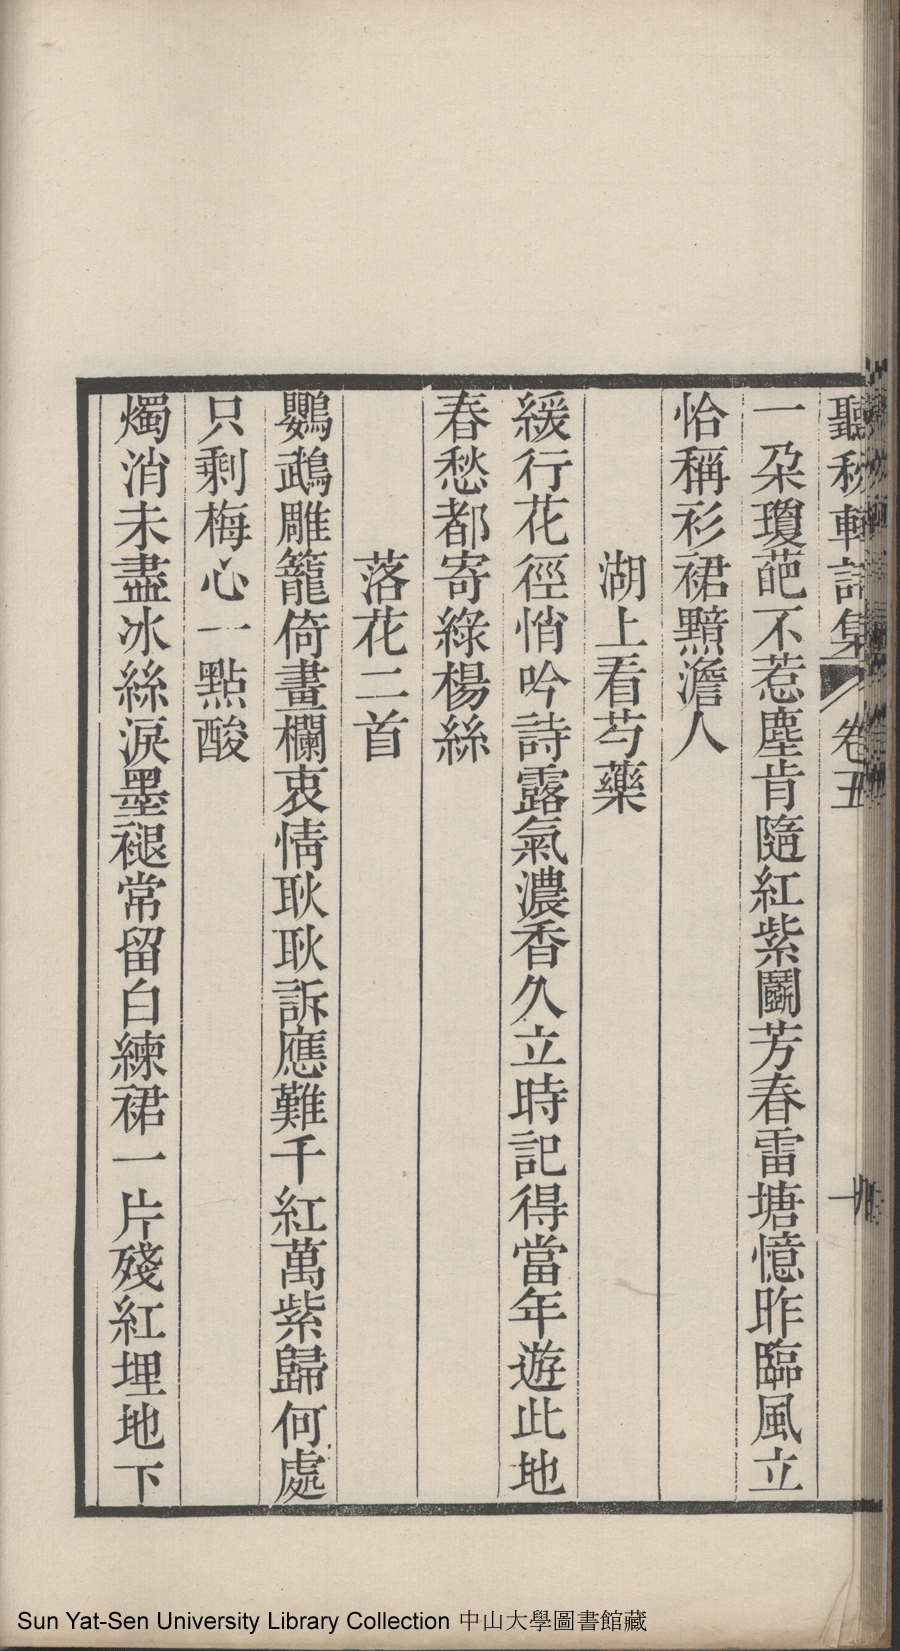 聽秋軒詩集 卷五
一朵瓊葩不惹塵肯隨紅紫鬭芳春雷塘憶昨臨風立
恰稱衫裙黯澹人
湖上看芍藥
緩行花徑悄吟詩露氣濃香久立時記得當年遊此地
春愁都寄綠楊絲
落花二首
鸚鵡雕籠倚畫欄衷情耿耿訴應難千紅萬紫歸何處
只剩梅心一點酸
燭消未盡冰絲淚墨褪常留白練裙一片殘紅埋地下
Sun Yat-Sen University Library Collection 中山大學圖書館藏